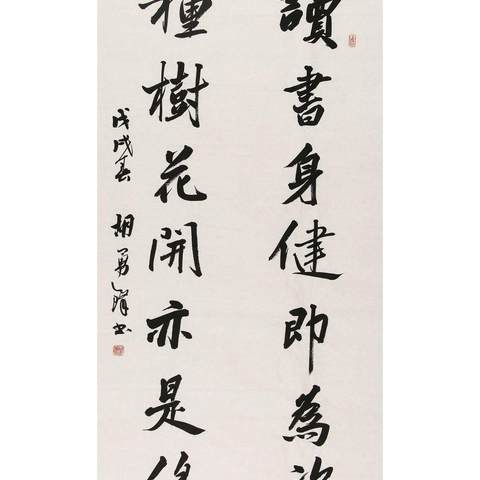 讀書身健即為
種樹花開亦是
戊戌春 胡勇鋒书